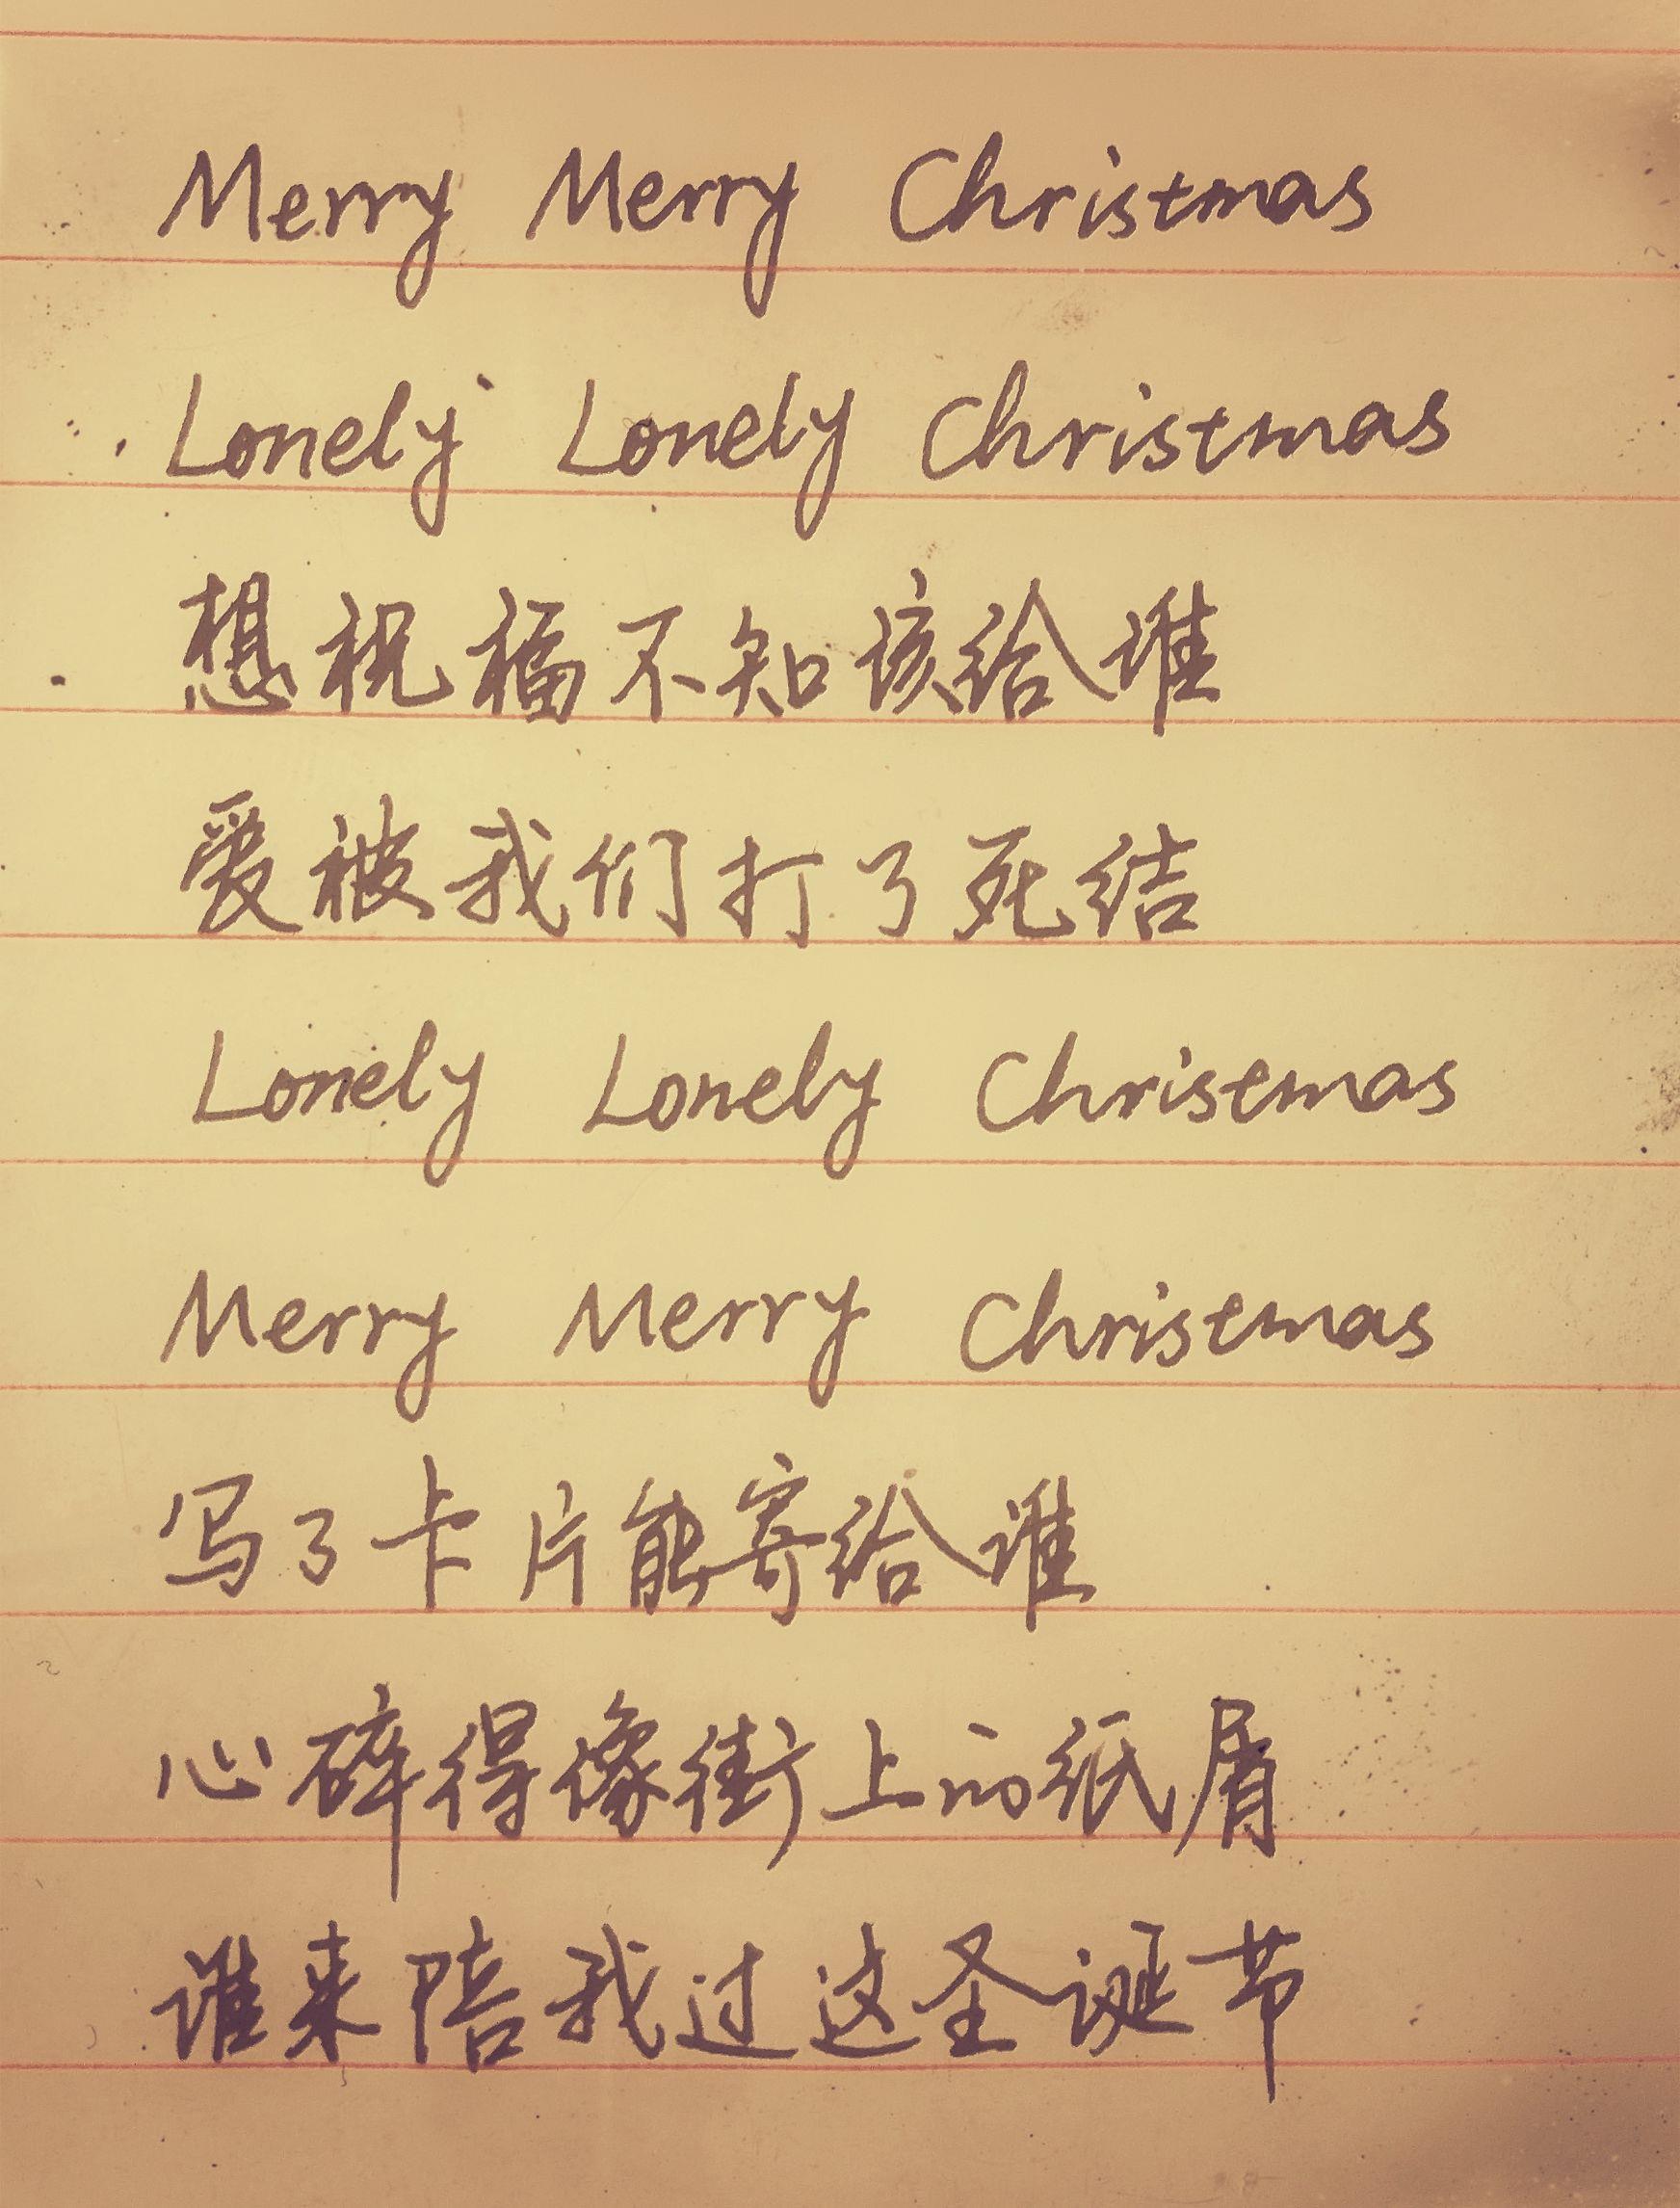 Merry Merry Christmas
Lonely Lonely Christmas
想祝福不知该给谁
爱被我们打了死结
Lonely Lonely Christmas
Merry Merry Christmas
写了卡片能寄给谁
心碎得像街上的纸屑
谁来陪我过这圣诞节